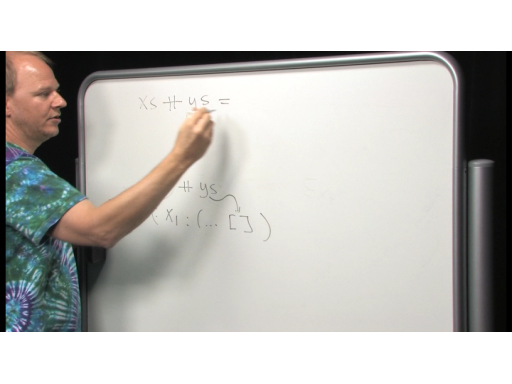 xs ++ ys =
++ ys
: x1 : (... [])